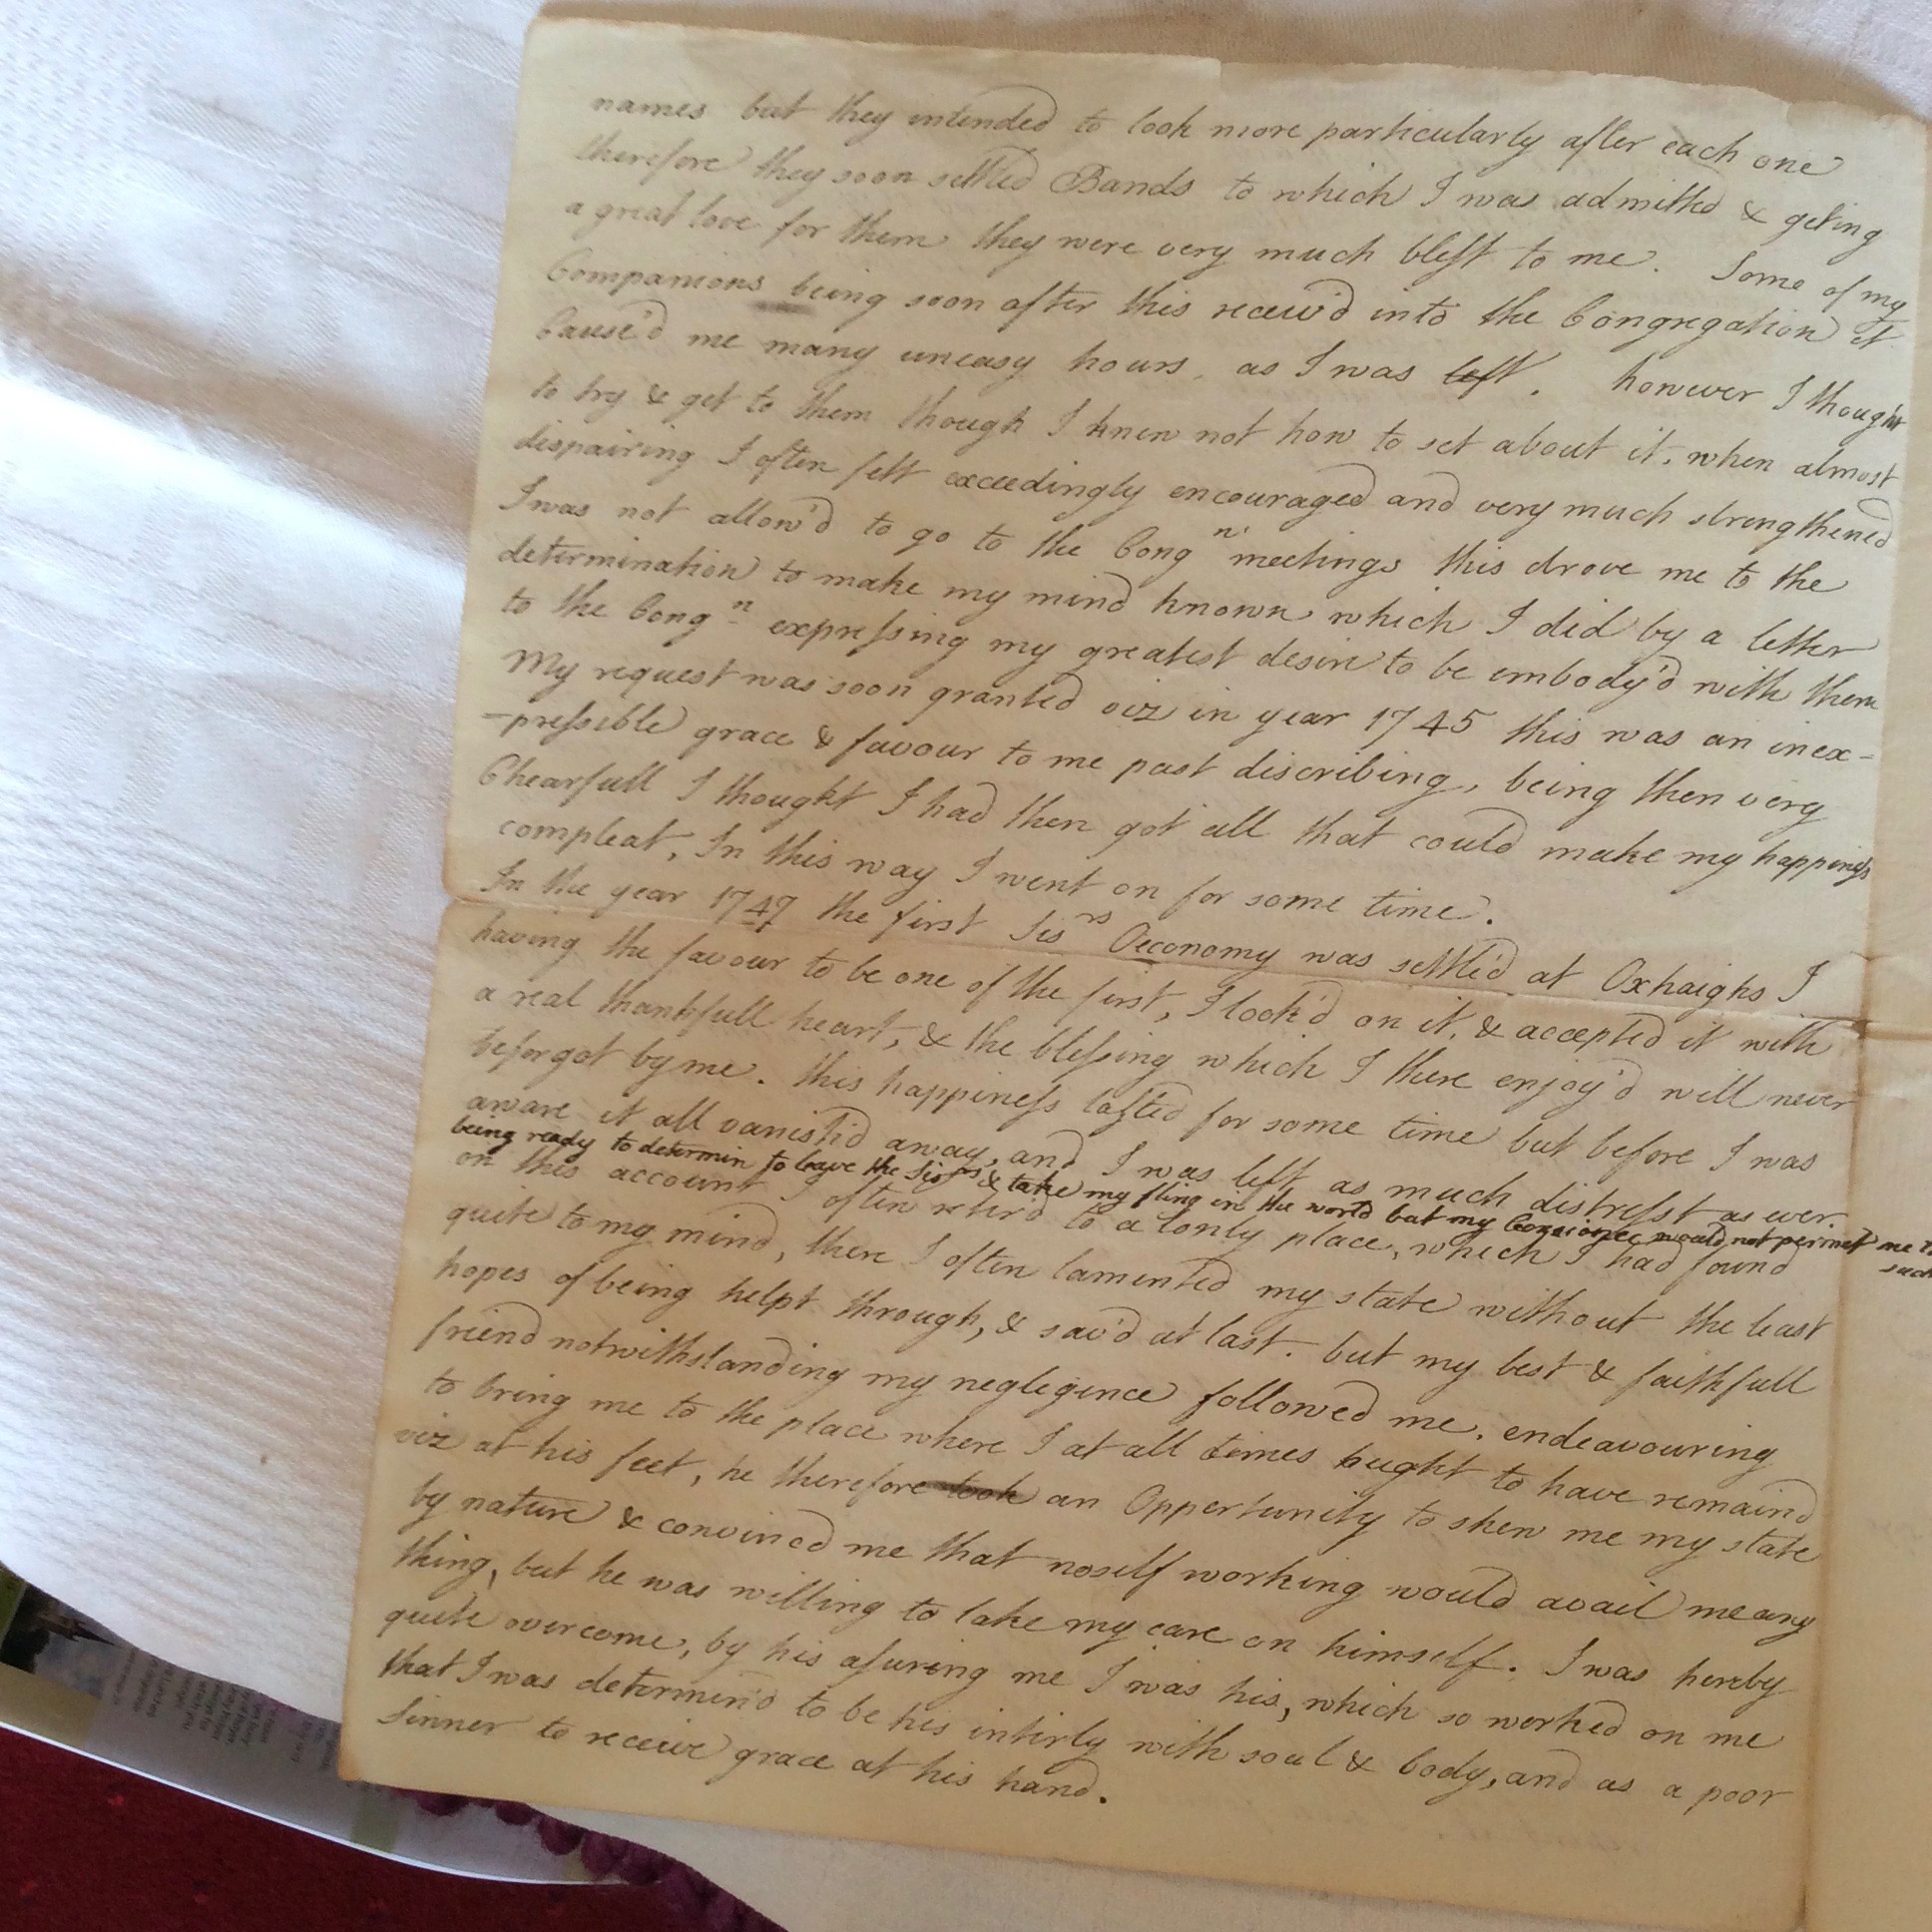 names but they intended to look more particularly after each one
therefore they soon settled Bands to which I was admitted & geting
a great love for them they were very much blest to me. Some of my
Companions being soon after this receiv'd into the Congregation it
Cause'd me many uneasy hours, as I was left. however I thought
to try & get to them though I knew not how to set about it, when almost
dispairing I often felt exceedingly encouraged and very much strengthened
I was not allow'd to go to the Congn meetings this drove me to the
determination to make my mind known which I did by a letter
to the Congn expressing my greatest desire to be embody'd with them
My request was soon granted viz in year 1745 this was an inex-
-pressible grace & favour to me past discribing, being then very
Chearfull I thought I had then got all that could make my happiness
compleat, In this way I went on for some time.
In the year 1747 the first Sisrs Oeconomy was settle'd at Oxhaighs I
having the favour to be one of the first, I look'd on it, & accepted it with
a real thankfull heart, & the blessing which I there enjoy'd will never
beforgot by me. this happiness lasted for some time but before I was
aware it all vanish'd away, and I was left as much distresst as ever.
being ready to determin to leave the Sisrs & take my fling in the world but my Concionce would not permit me to
such
on this account I often retir'd to a lonly place, which I had found
quite to my mind, there I often lamented my state without the least
hopes of being helpt through, & sav'd at last. but my best & faithfull
friend notwithstanding my neglegence followed me, endeavouring
to bring me to the place where I at all times ought to have remaind
viz at his feet, he therefore took an Opportunity to shew me my state
by nature & convinced me that noself working would avail me any
thing, but he was willing to take my care on himself. I was hereby
quite overcome, by his asuring me I was his, which so worked on me
that I was determin'd to be his intirly with soul & body, and as a poor
Sinner to receive grace at his hand.